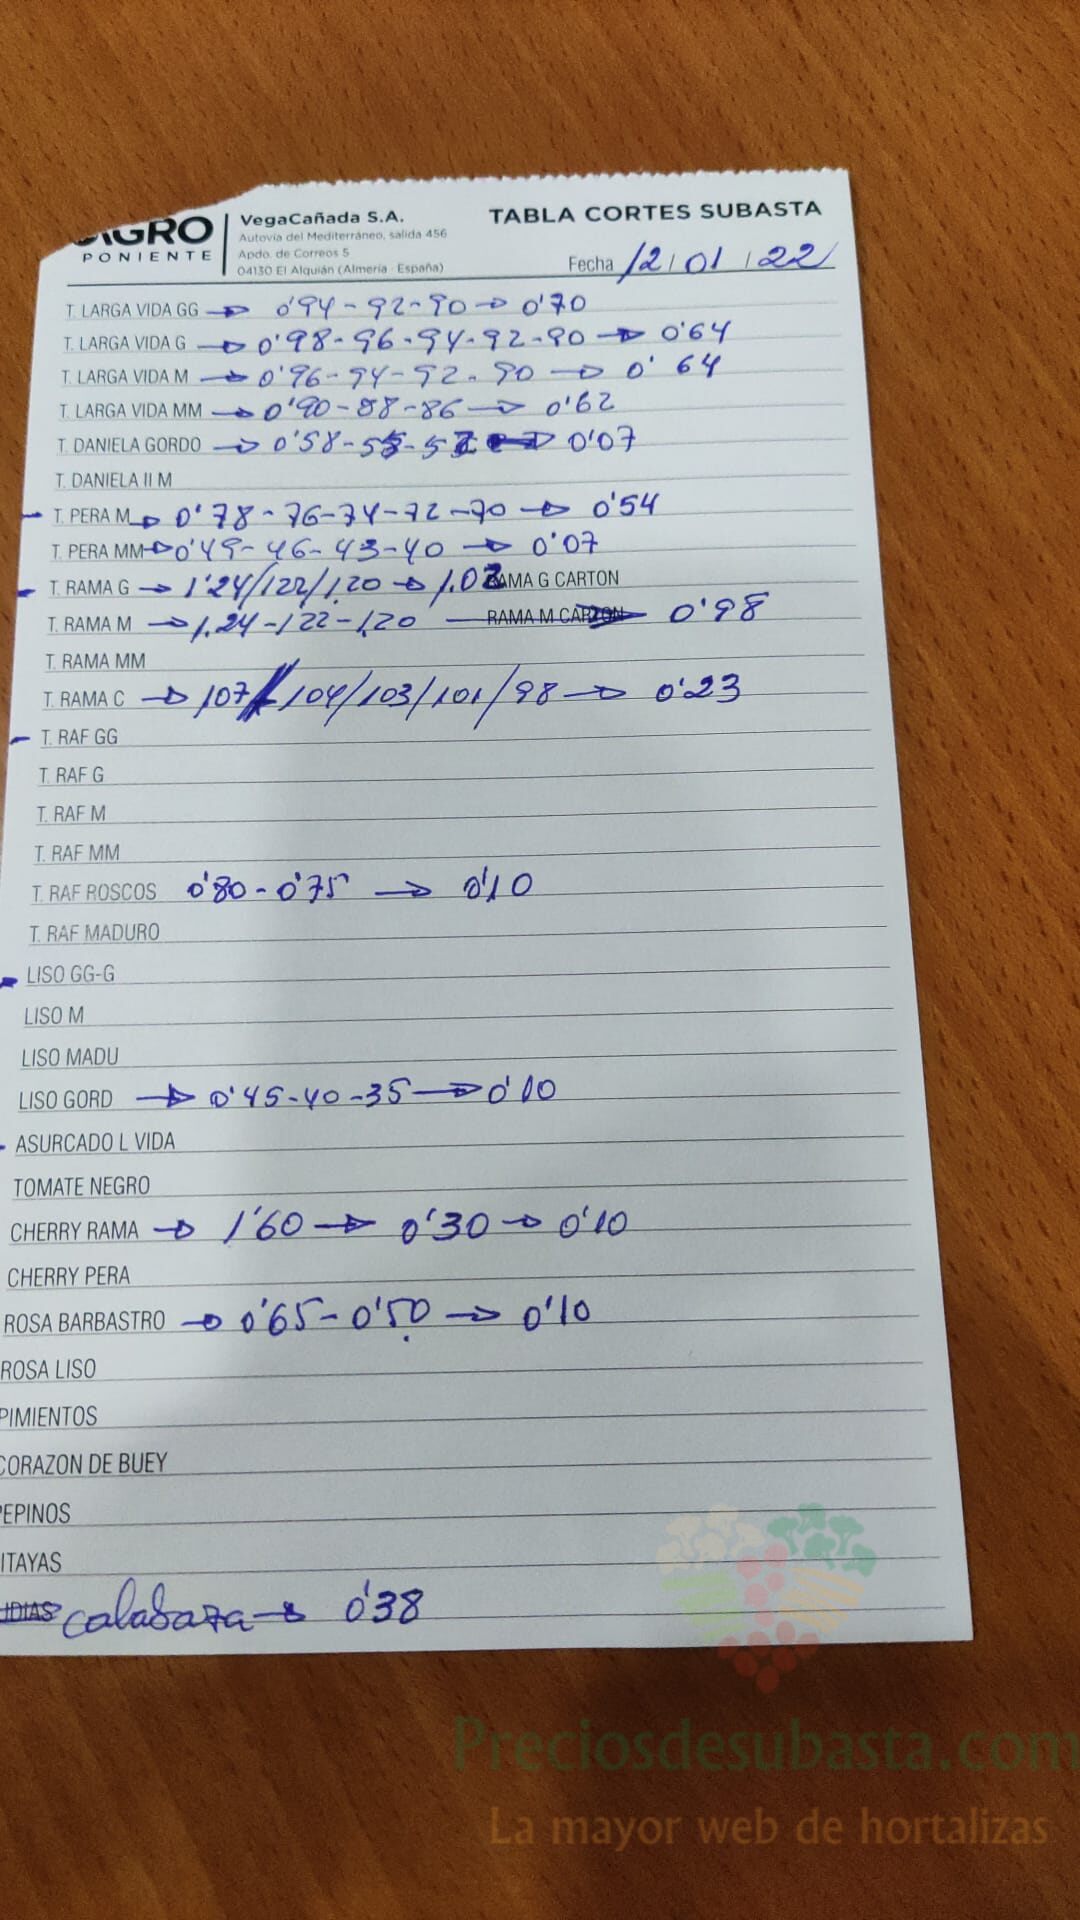 AGRO
PONIENTE
VegaCañada S.A.
Autovía del Mediterráneo, salida 456
Apdo. de Correos 5
04130 El Alquián (Almería - España)
TABLA CORTES SUBASTA
Fecha 12/01/22
T. LARGA VIDA GG → 0'94-92-90→0'70
T. LARGA VIDA G → 0'98-96-94-92-90→0'64
T. LARGA VIDA M → 0'96-94-92-90→0'64
T. LARGA VIDA MM → 0'90-88-86→0'62
T. DANIELA GORDO → 0'58-55-52→0'07
T. DANIELA II M
T. PERA M → 0'78-76-74-72-70→0'54
T. PERA MM → 0'49-46-43-40→0'07
T. RAMA G → 1'24/122/1,20→1.02 RAMA G CARTON
T. RAMA M → 1,24-122-1,20 — RAMA M CARTON → 0'98
T. RAMA MM
T. RAMA C → 107/104/103/101/98→0'23
T. RAF GG
T. RAF G
T. RAF M
T. RAF MM
T. RAF ROSCOS 0'80-0'75→0'10
T. RAF MADURO
LISO GG-G
LISO M
LISO MADU
LISO GORD → 0'45-40-35→0'10
ASURCADO L VIDA
TOMATE NEGRO
CHERRY RAMA → 1'60→0'30→0'10
CHERRY PERA
ROSA BARBASTRO → 0'65-0'50→0'10
ROSA LISO
PIMIENTOS
CORAZON DE BUEY
PEPINOS
ITAYAS
UDIAS calabaza→0'38
Preciosdesubasta.com
La mayor web de hortalizas